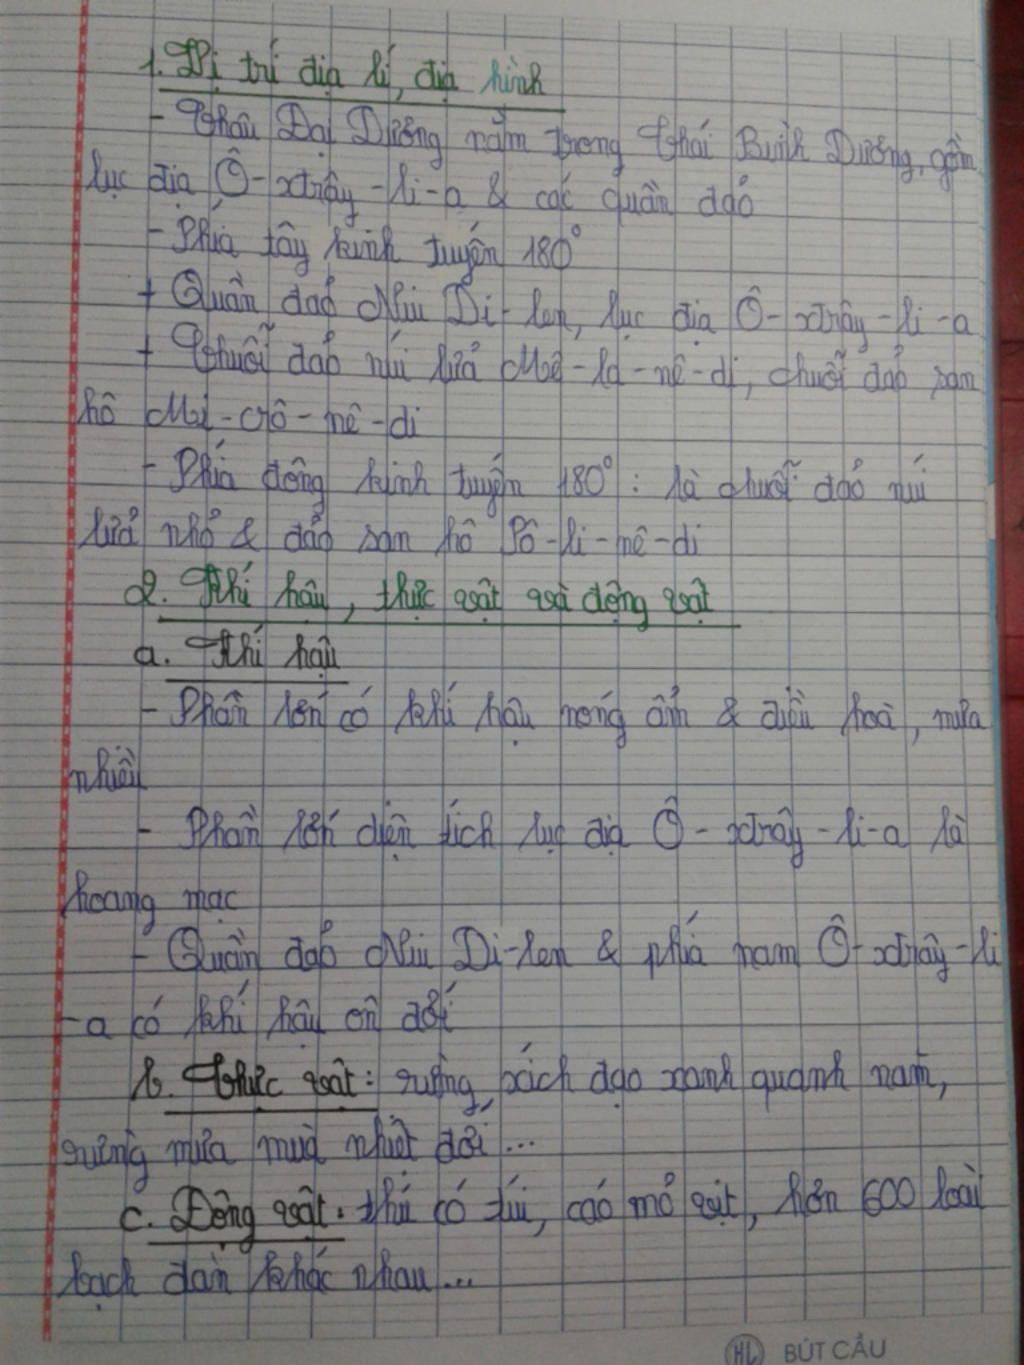 1. Vị trí địa lí, địa hình
- Châu Đại Dương nằm trong Thái Bình Dương, gồm
lục địa Ô-xtrây-li-a & các quần đảo
- Phía tây kinh tuyến 180°
+ Quần đảo Niu Di-len, lục địa Ô-xtrây-li-a
+ Chuỗi đảo núi lửa Mê-la-nê-di, chuỗi đảo san
hô Mi-crô-nê-di
- Phía đông kinh tuyến 180°: là chuỗi đảo núi
lửa nhỏ & đảo san hô Pô-li-nê-di
2. Khí hậu, thực vật và động vật
a. Khí hậu
- Phần lớn có khí hậu nóng ẩm & điều hoà, mưa
nhiều
- Phần lớn diện tích lục địa Ô-xtrây-li-a là
hoang mạc
- Quần đảo Niu Di-len & phía nam Ô-xtrây-li
-a có khí hậu ôn đới
b. Thực vật: rừng xích đạo xanh quanh năm,
rừng mưa mùa nhiệt đới...
c. Động vật: thú có túi, cáo mỏ vịt, hơn 600 loài
bạch đàn khác nhau...
HL BÚT CẦU